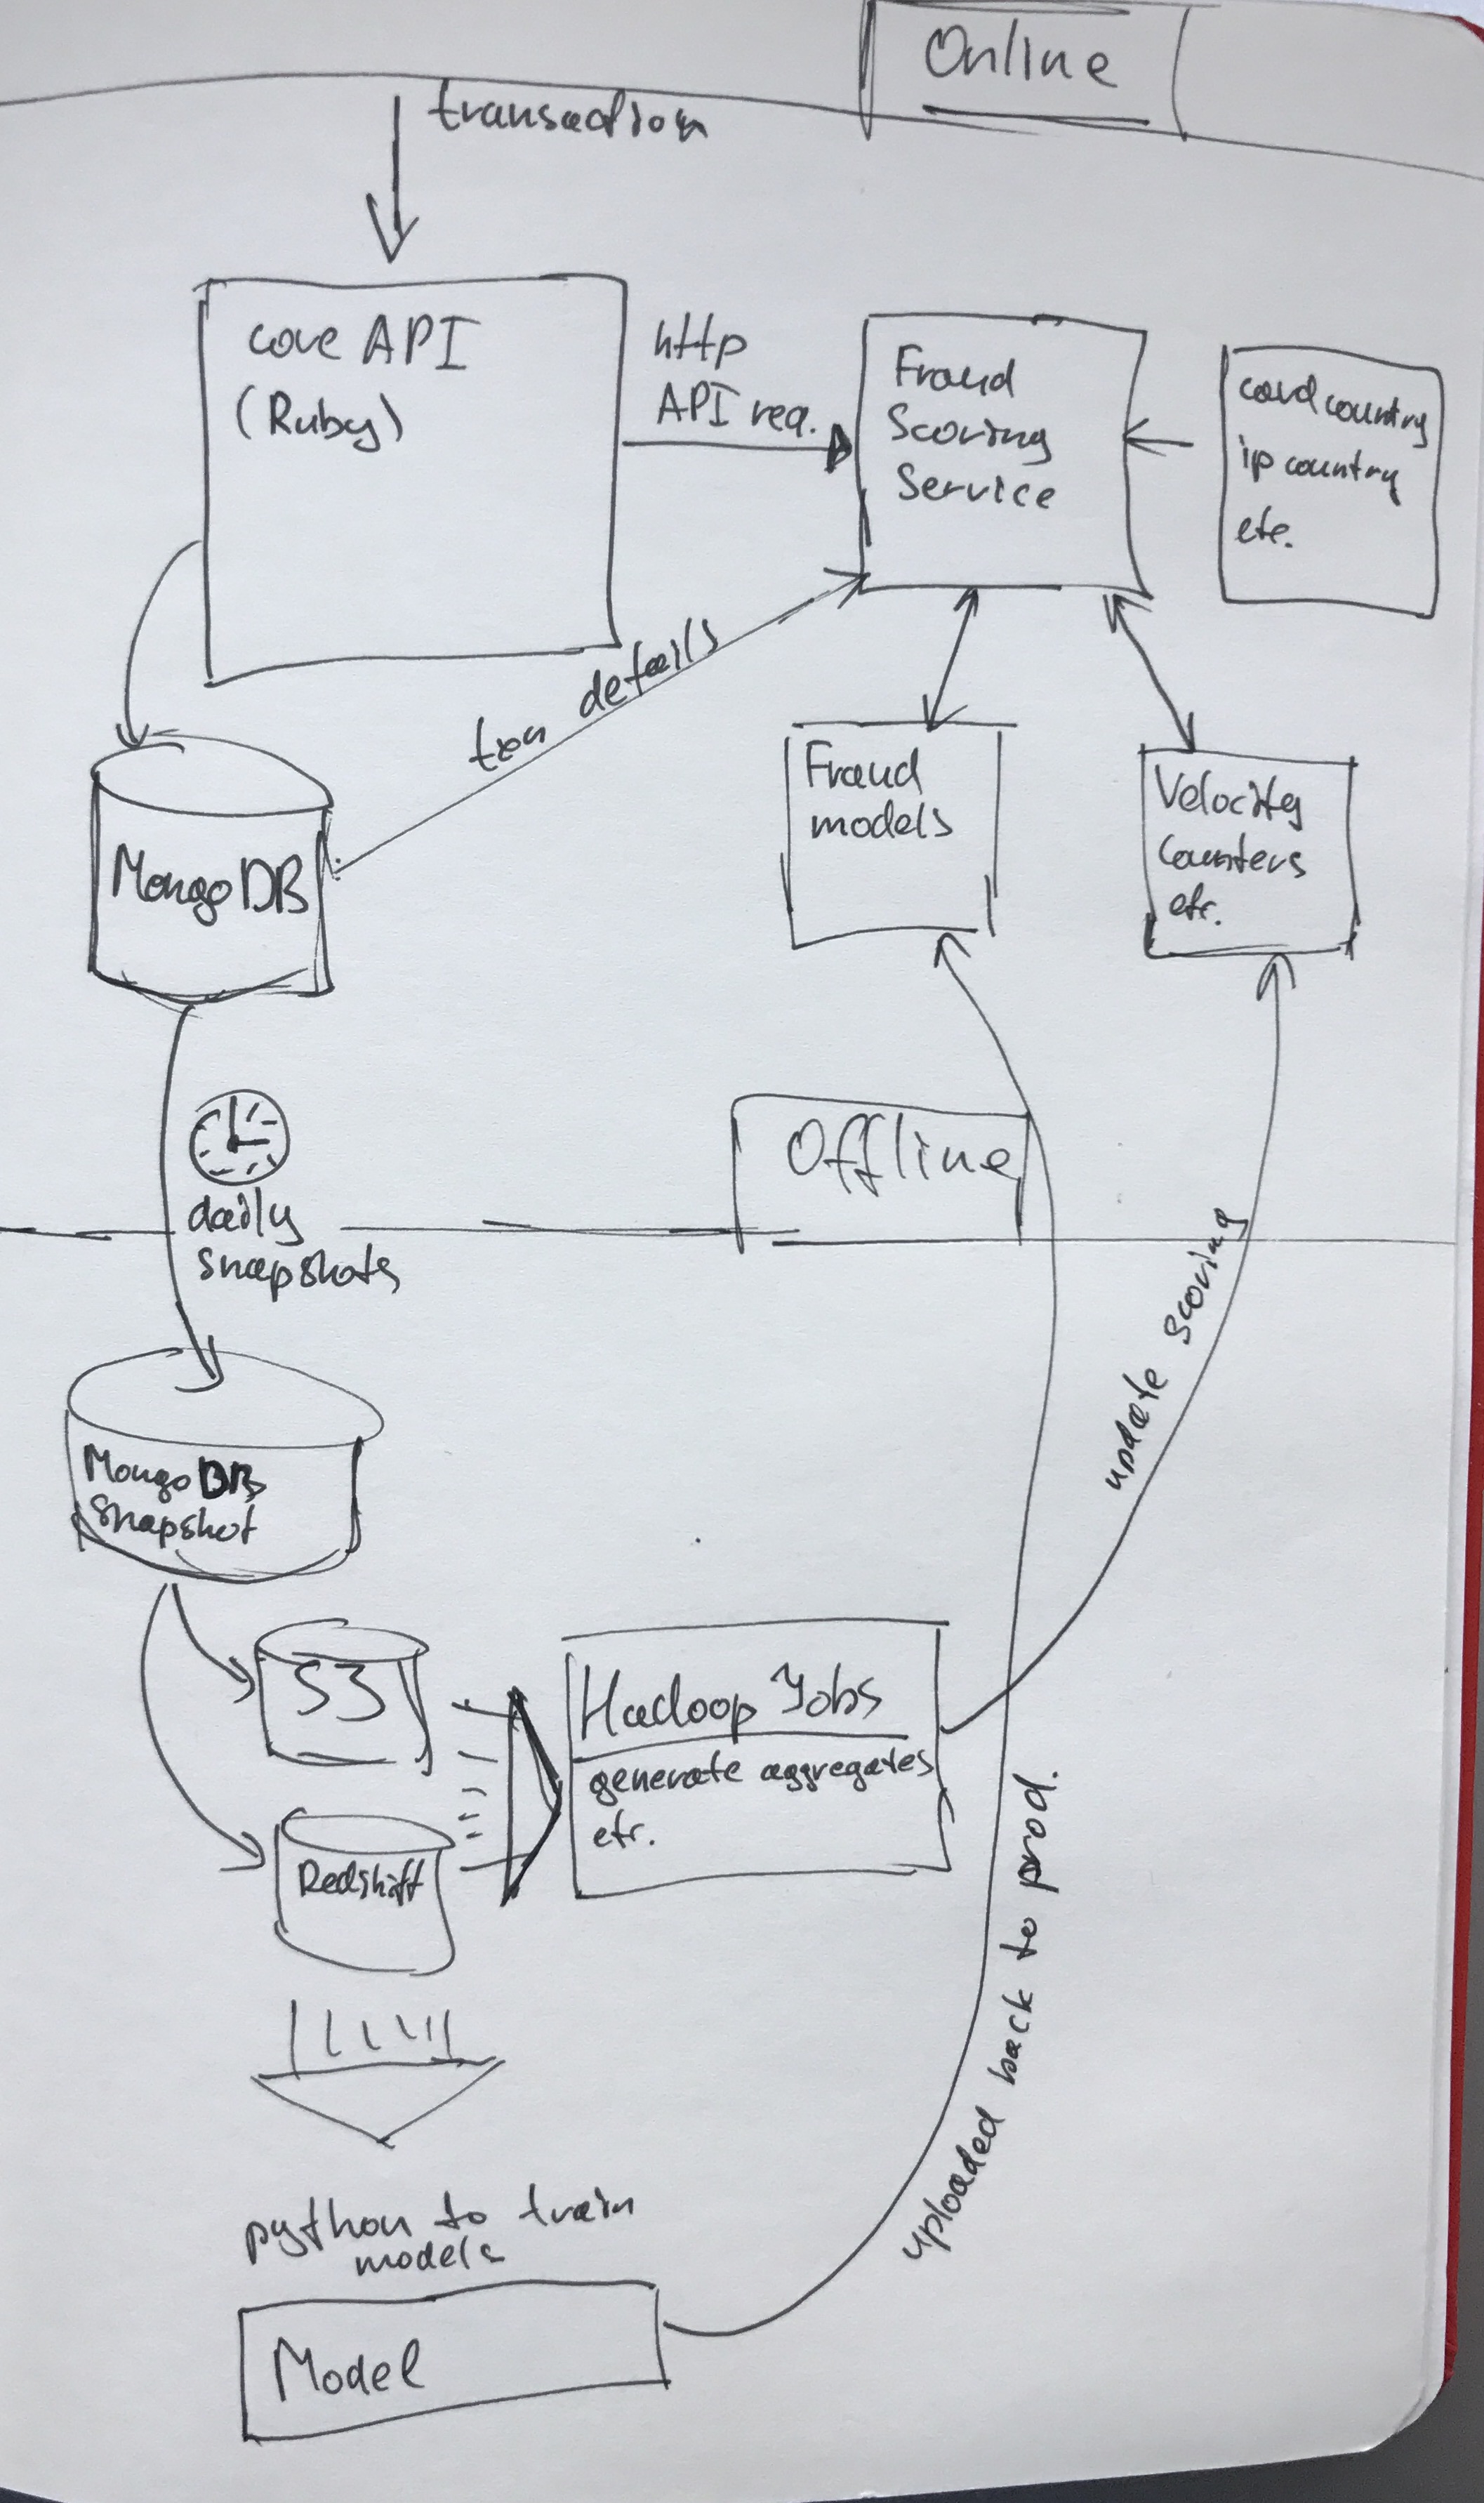 Online
transaction
core API
(Ruby)
http
API req.
Fraud
Scoring
Service
card country
ip country
etc.
txn details
MongoDB
Fraud
models
Velocity
Counters
etc.
Offline
daily
snapshots
update scoring
MongoDB
Snapshot
S3
Hadoop Jobs
generate aggregates
etc.
Redshift
uploaded back to prod.
python to train
models
Model